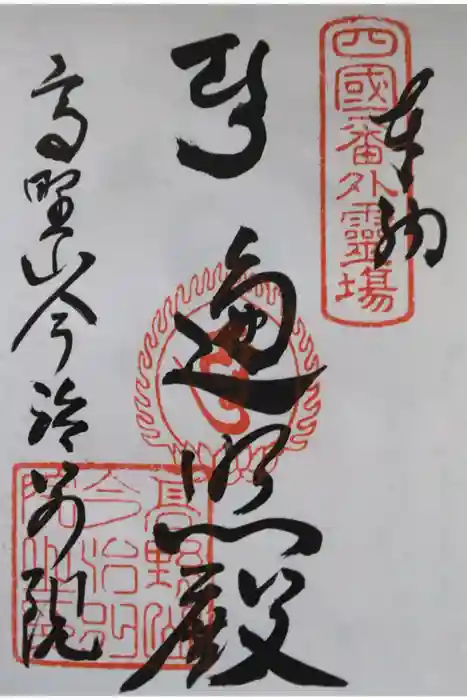 奉納
四國番外靈場
遍照殿
高野山今治別院
高野山
今治別
院之印